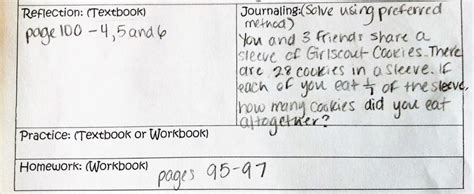 Reflection: (Textbook)
page 100 - 4, 5 and 6
Journaling: (Solve using preferred
method)
You and 3 friends share a
sleeve of Girlscout Cookies. There
are 28 cookies in a sleeve. If
each of you eat 1/7 of the sleeve,
how many cookies did you eat
altogether?
Practice: (Textbook or Workbook)
Homework: (Workbook)
pages 95-97